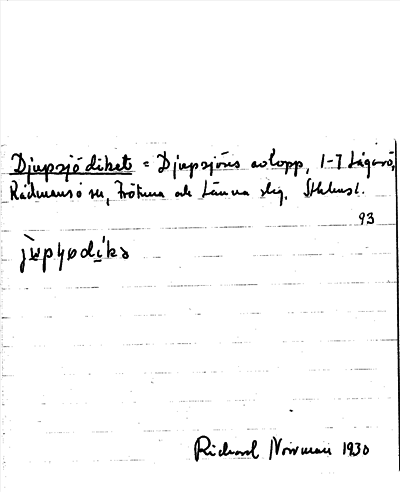 Djupsjödiket = Djupsjöns avlopp, 1-7 Lågarö,
Rådmansö sn, Frötuna och Länna slg. Sthlms l.
93
Richard Norrman 1930